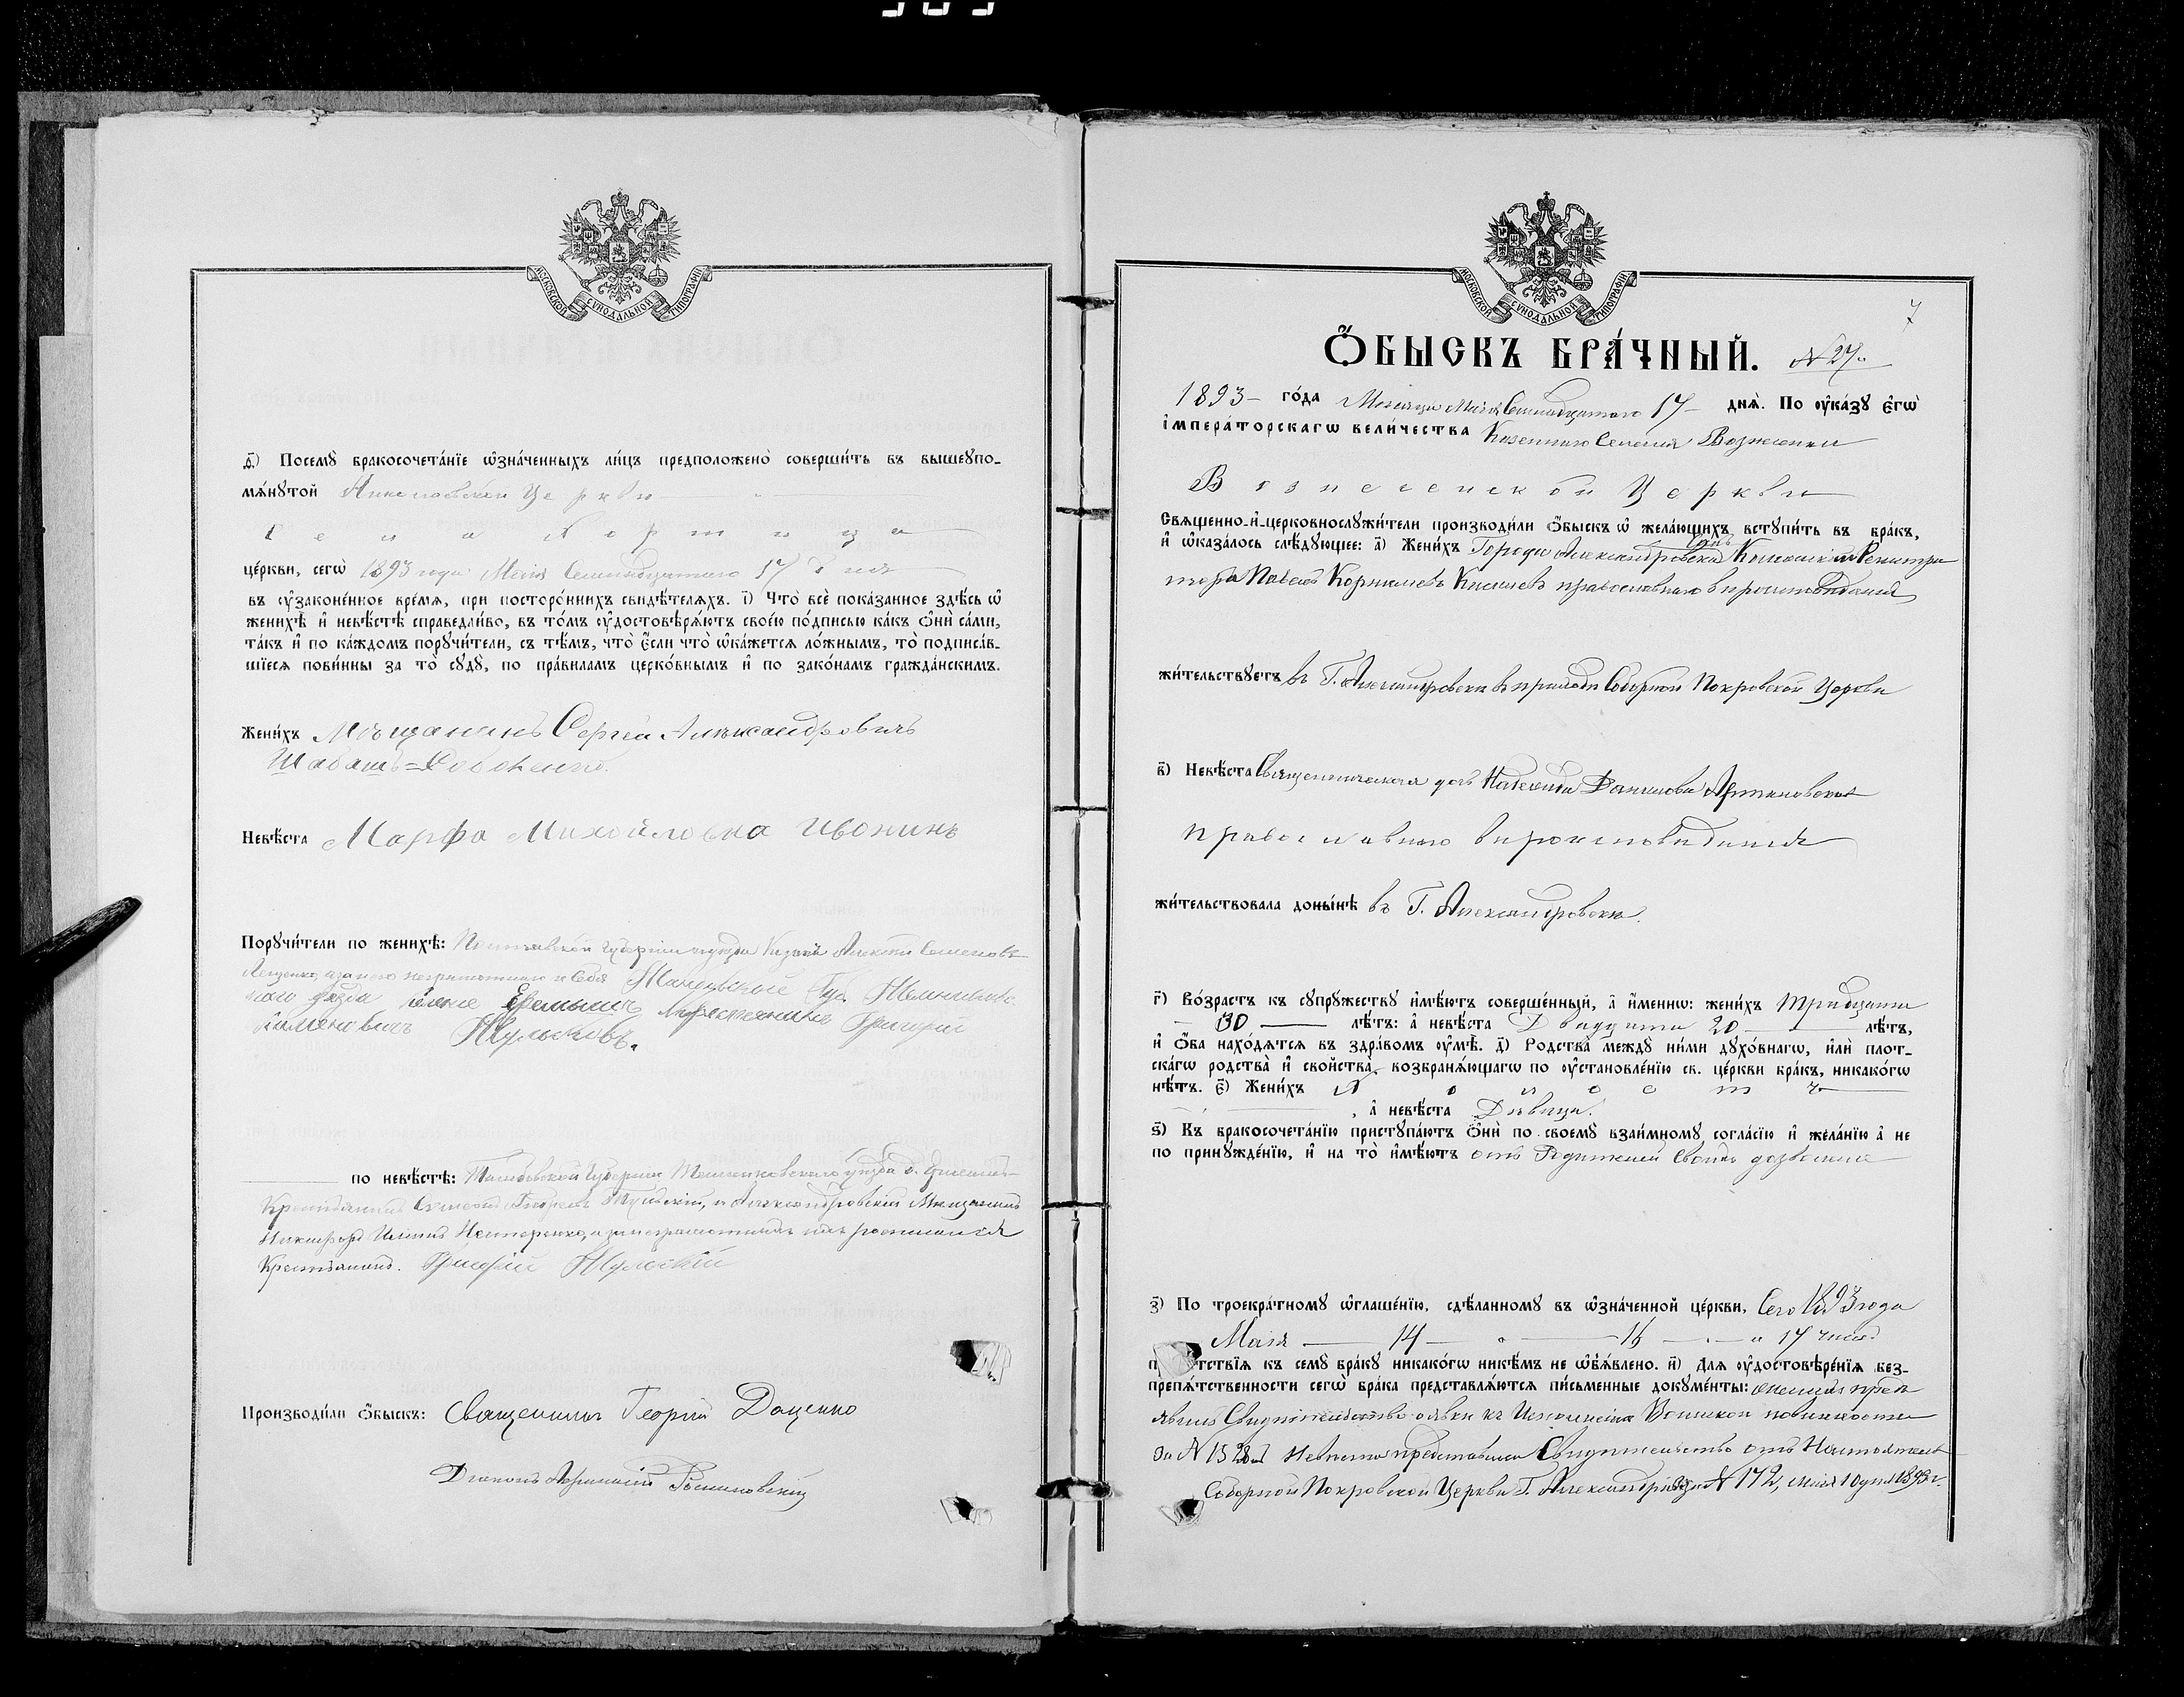 МОСКОВСКОЙ СѴНОДАЛЬНОЙ ТИПОГРАФІИ
ѳ҃) Посемꙋ бракосочета́нїе ѡ҆зна́ченныхъ ли́цъ предположено̀ соверши́ть въ вышеꙋпо-
мѧ́нꙋтой Николаевской Церкви
Села Хортица
це́ркви, сегѡ̀ 1893 года Маія Семнадцатаго 17 дня
въ ᲂу҆зако́ненное вре́мѧ, при посторо́ннихъ свидѣ́телѧхъ. і҃) Что̀ всѐ пока́занное здѣ́сь ѡ҆
женихѣ̀ и҆ невѣ́стѣ справедли́во, въ то́мъ ᲂу҆достовѣрѧ́ютъ свое́ю по́дписью ка́къ ѻ҆нѝ са́ми,
та́къ и҆ по ка́ждомъ порꙋчи́тели, съ тѣ́мъ, что̀ є҆́сли что̀ ѡ҆ка́жетсѧ ло́жнымъ, то̀ подписа́в-
шїесѧ пови́нны за то̀ сꙋдꙋ̀, по пра́виламъ церко́внымъ и҆ по зако́намъ гражда́нскимъ.
Жени́хъ Мѣщанинъ Сергей Александровичъ
Шабашъ=
Невѣ́ста Марфа Михайловна Ивонинъ
Порꙋчи́тели по женихѣ̀: Полтавской Губерніи Козакъ Алексѣй Семеновъ
Лещенко, а за него неграмотнаго и себя Тамбовской Губ.
уѣзда крестьянинъ Григорій
по невѣ́стѣ: Тамбовской Губерніи Темниковскаго уѣзда
Крестьянинъ и Александровскій Мѣщанинъ
Никифоръ Нестеренко, а за неграмотныхъ росписался
Крестьянинъ Григорій
Производи́ли ѻ҆́быскъ: Священникъ Георгій Доценко
Діаконъ
МОСКОВСКОЙ СѴНОДАЛЬНОЙ ТИПОГРАФІИ
7
Ѻ҆́БЫСКЪ БРА́ЧНЫЙ. № 27.
1893 го́да Мѣсяца Маія Семнадцатаго 17 днѧ̀. По ᲂу҆ка́зꙋ є҆гѡ̀
і҆мпера́торскагѡ вели́чества Казеннаго Селенія Вознесенки
Вознесенской Церкви
Свѧще́нно-и҆-церковнослꙋжи́тели производи́ли ѻ҆́быскъ ѡ҆ жела́ющихъ встꙋпи́ть въ бра́къ,
и҆ ѡ҆каза́лось слѣ́дꙋющее: а҃) Жени́хъ Города Александровска Сынъ Коллежскаго Регистра
тора Павелъ Корнилевъ Киселевъ православнаго вѣроисповѣданія
жи́тельствꙋетъ въ Г. Александровскѣ въ приходѣ Соборной Покровской Церкви
в҃) Невѣ́ста Священническая дочь Надежда Данилова
православнаго вѣроисповѣданія
жи́тельствовала доны́нѣ въ Г. Александровскѣ.
г҃) Во́зрастъ къ сꙋпрꙋ́жествꙋ и҆мѣ́ютъ соверше́нный, а҆ и҆́меннѡ: жени́хъ тридцати
30 лѣ́тъ: а҆ невѣ́ста Двадцати 20 лѣ́тъ,
и҆ ѻ҆́ба нахо́дѧтсѧ въ здра́вомъ ᲂу҆мѣ̀. д҃) Родства̀ междꙋ̀ ни́ми дꙋхо́внагѡ, и҆лѝ плот-
ска́гѡ родства̀ и҆ сво́йства̀, возбранѧ́ющагѡ по ᲂу҆становле́нїю св. це́ркви бра́къ, никако́гѡ
нѣ́тъ. є҃) Жени́хъ Холостъ
, а҆ невѣ́ста Дѣвица.
ѕ҃) Къ бракосочета́нїю пристꙋпа́ютъ ѻ҆нѝ по своемꙋ̀ взаи́мномꙋ согла́сїю и҆ жела́нїю а҆ не
по принꙋжде́нїю, и҆ на то̀ и҆мѣ́ютъ отъ Родителей своихъ дозволеніе
з҃) По троекра́тномꙋ ѡ҆глаше́нїю, сдѣ́ланномꙋ въ ѡ҆зна́ченной це́ркви, Сего 1893 года
Маія 14 16 и 17 числъ
п тствїѧ къ семꙋ̀ бра́кꙋ никако́гѡ никѣ́мъ не ѡ҆б̾ѧ́влено. и҃) Для ᲂу҆достовѣре́нїѧ без-
препѧ́тственности сегѡ̀ бра́ка представлѧ́ютсѧ пи́сьменные докꙋме́нты: женихъ пред
явилъ Свидѣтельство о явкѣ къ Исполненію Воинской повинности
за № Невѣста представила Свидѣтельство отъ Настоятеля
Соборной Покровской Церкви Г. Александровска № 172, Маія 10 дня 1893 г.